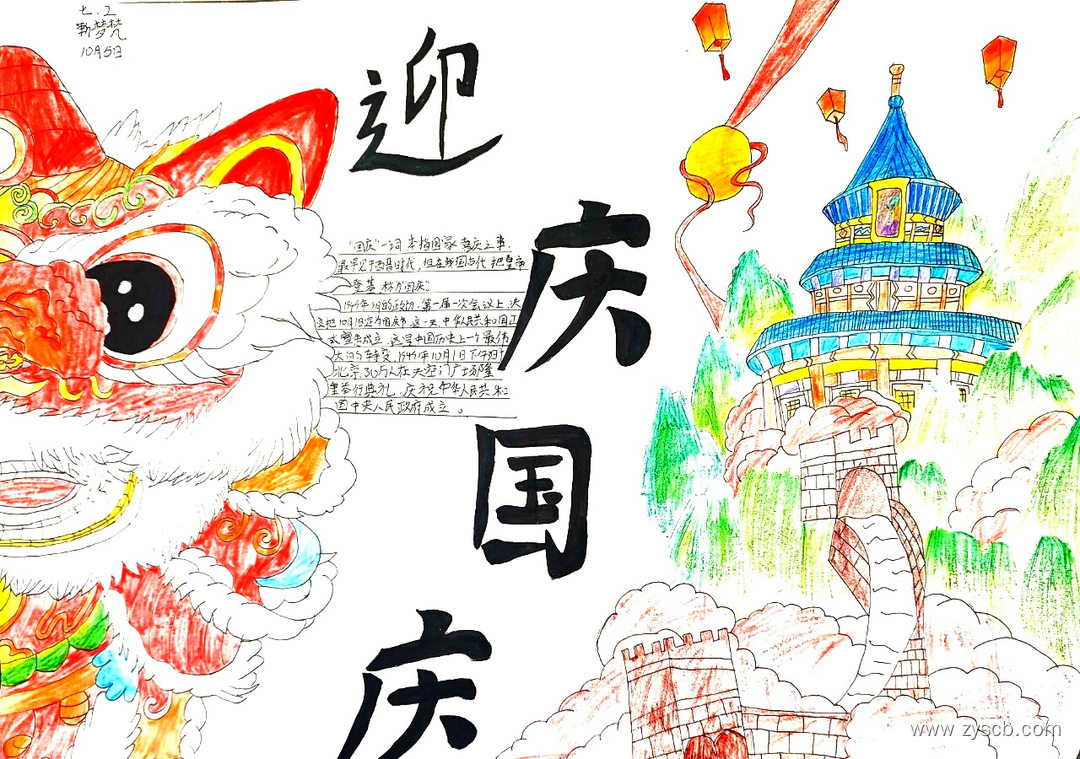 七.2
靳梦梵
10月5日
迎
庆
国
庆
"国庆"一词本指国家喜庆之事.
最早见于西晋时代,但在我国古代把皇帝
登基称为国庆.
1949年9月的政协第一届一次会议上,决
定把10月1日定为国庆节这一天中华人民共和国正
式宣告成立,这是中国历史上一个最伟
大的转变,1949年10月1日下午3时
北京30万人在天安门广场隆
重举行典礼,庆祝中华人民共和
国中央人民政府成立。
www.zyscb.com